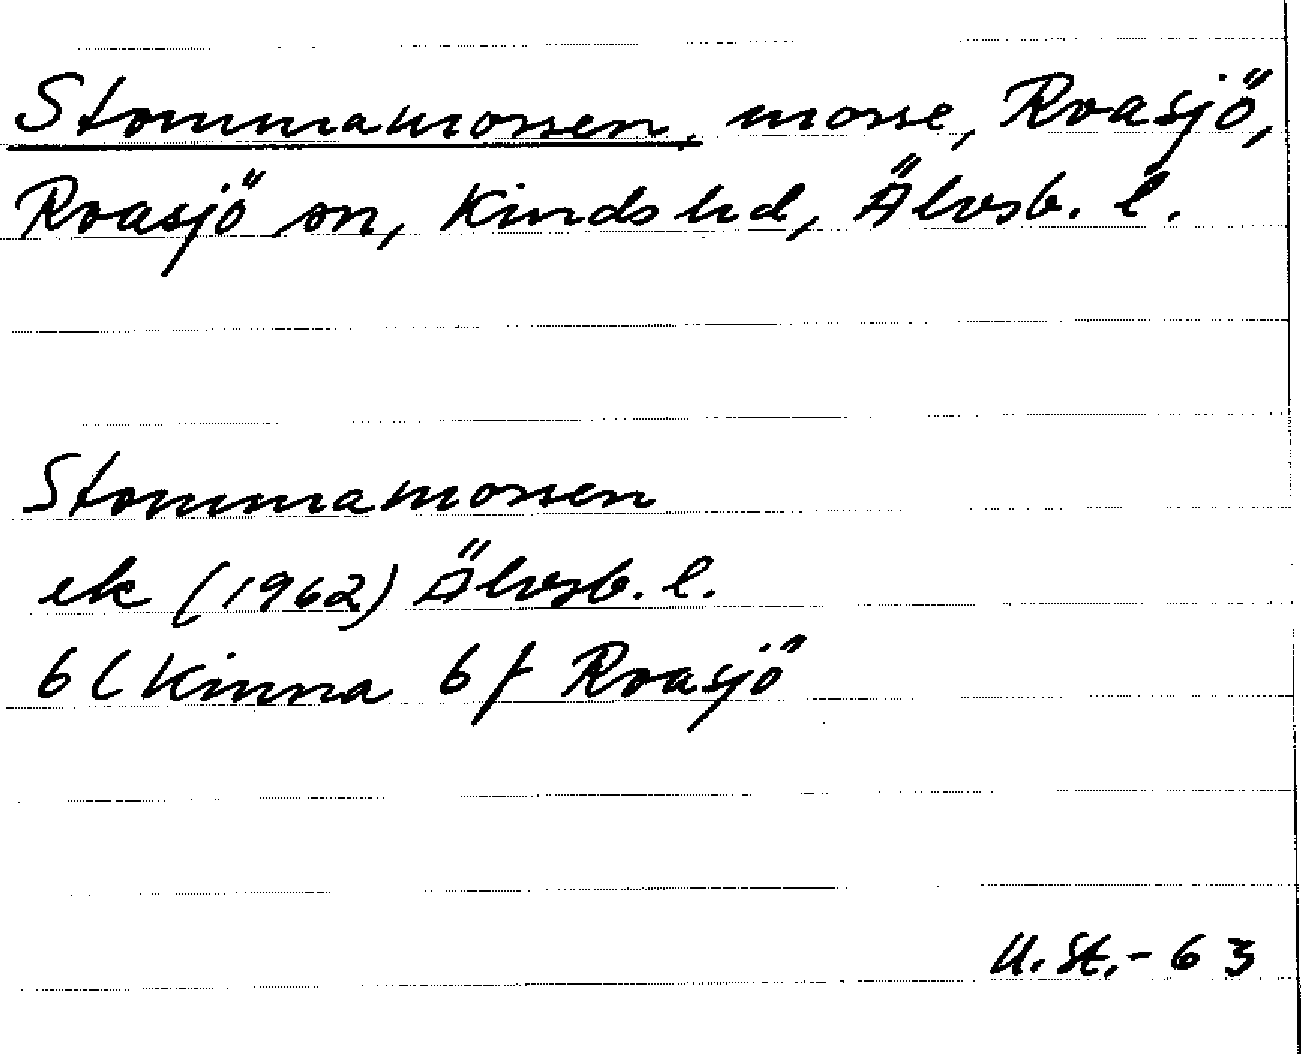 Stommamossen, mosse, Roasjö,
Roasjö sn, Kinds hd, Älvsb. l.
Stommamossen
ek (1962) Älvsb. l.
6 C Kinna 6 f Roasjö
U. St. - 63